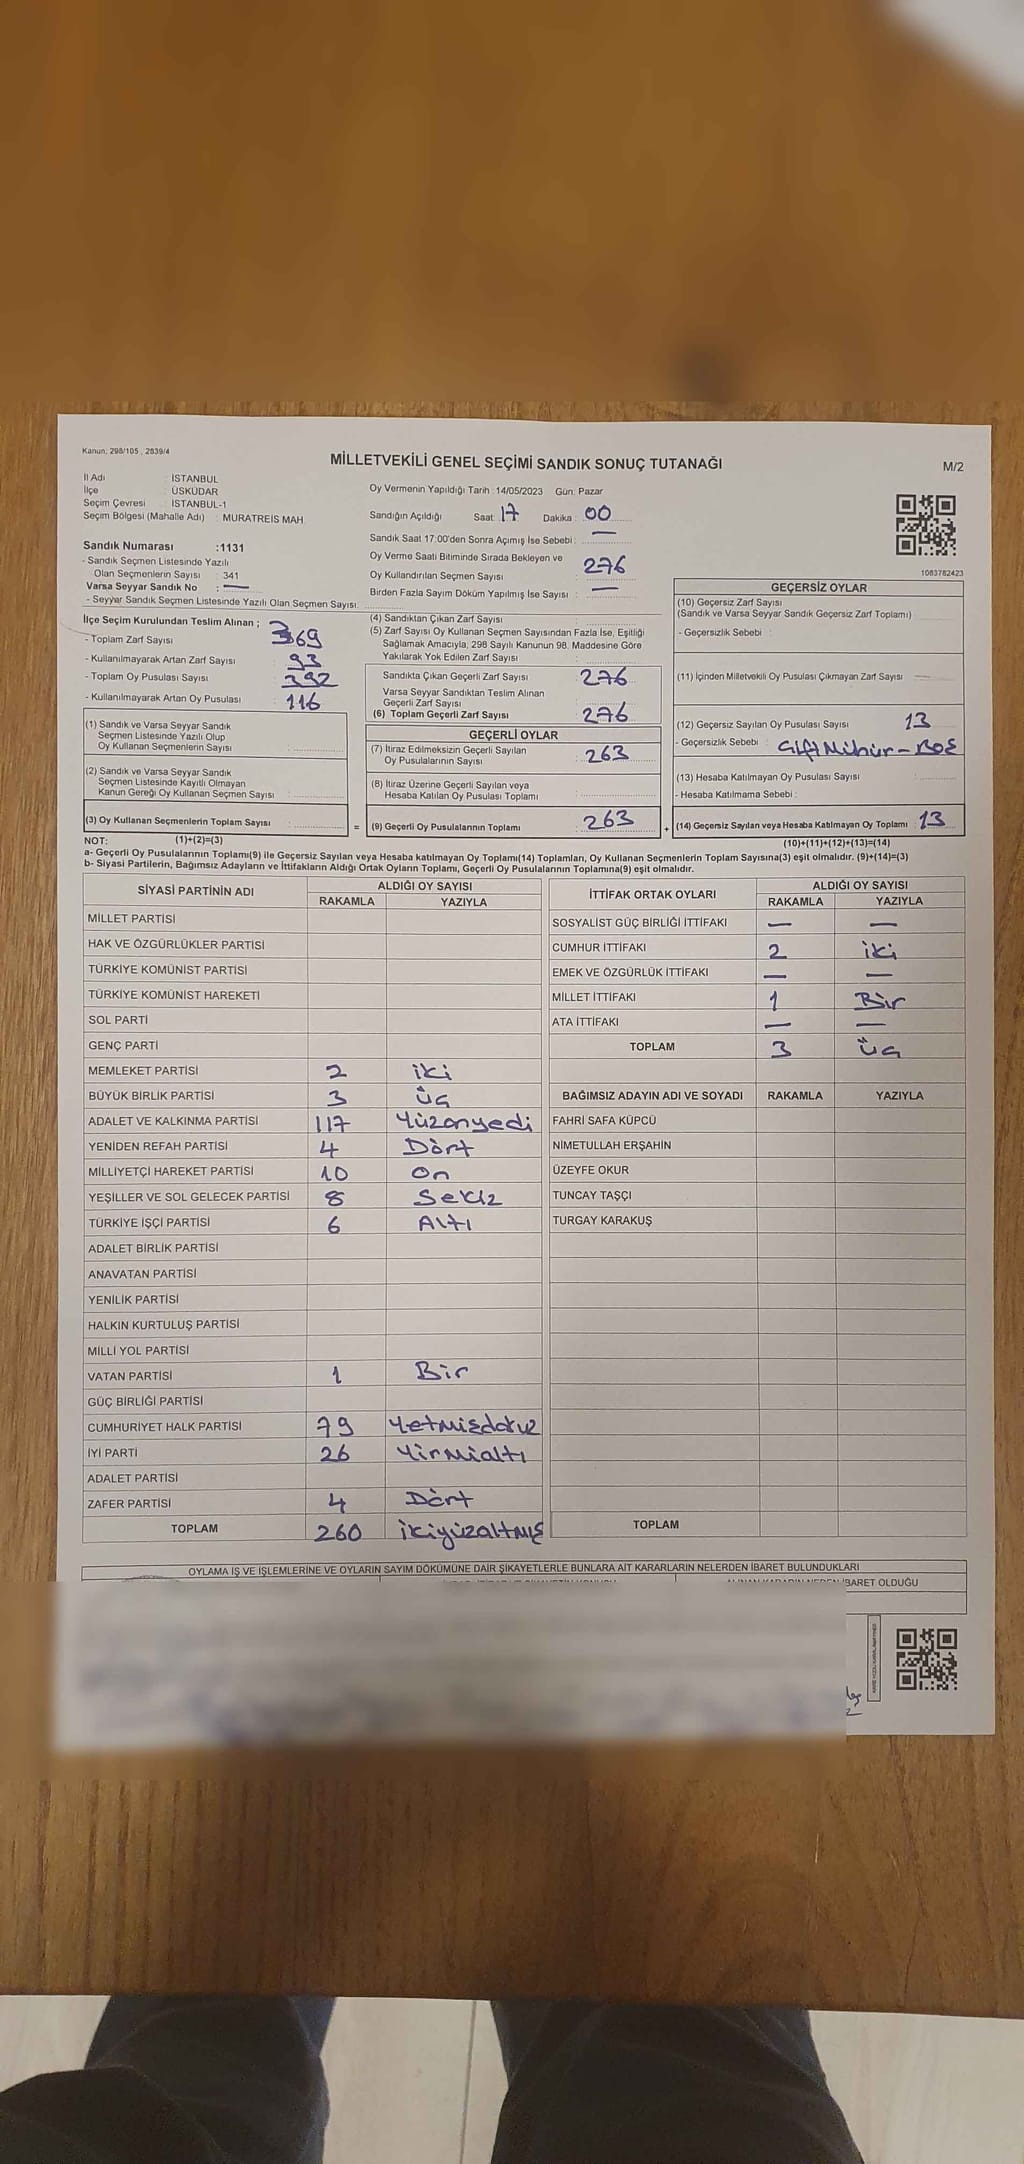 Kanun, 298/105 , 2839/4
MİLLETVEKİLİ GENEL SEÇİMİ SANDIK SONUÇ TUTANAĞI
M/2
İl Adı : İSTANBUL
İlçe : ÜSKÜDAR
Seçim Çevresi : İSTANBUL-1
Seçim Bölgesi (Mahalle Adı) : MURATREİS MAH.
Sandık Numarası :1131
- Sandık Seçmen Listesinde Yazılı
Olan Seçmenlerin Sayısı : 341
Varsa Seyyar Sandık No : —
- Seyyar Sandık Seçmen Listesinde Yazılı Olan Seçmen Sayısı:
Oy Vermenin Yapıldığı Tarih :14/05/2023 Gün: Pazar
Sandığın Açıldığı Saat: 17 Dakika : 00
Sandık Saat 17:00'den Sonra Açımış İse Sebebi : —
Oy Verme Saati Bitiminde Sırada Bekleyen ve
Oy Kullandırılan Seçmen Sayısı : 276
Birden Fazla Sayım Döküm Yapılmış İse Sayısı : —
1083782423
İlçe Seçim Kurulundan Teslim Alınan ;
- Toplam Zarf Sayısı : 369
- Kullanılmayarak Artan Zarf Sayısı : 93
- Toplam Oy Pusulası Sayısı : 392
- Kullanılmayarak Artan Oy Pusulası : 116
(1) Sandık ve Varsa Seyyar Sandık
Seçmen Listesinde Yazılı Olup
Oy Kullanan Seçmenlerin Sayısı :
(2) Sandık ve Varsa Seyyar Sandık
Seçmen Listesinde Kayıtlı Olmayan
Kanun Gereği Oy Kullanan Seçmen Sayısı :
(3) Oy Kullanan Seçmenlerin Toplam Sayısı :
(4) Sandıktan Çıkan Zarf Sayısı :
(5) Zarf Sayısı Oy Kullanan Seçmen Sayısından Fazla İse, Eşitliği
Sağlamak Amacıyla, 298 Sayılı Kanunun 98. Maddesine Göre
Yakılarak Yok Edilen Zarf Sayısı :
Sandıkta Çıkan Geçerli Zarf Sayısı : 276
Varsa Seyyar Sandıktan Teslim Alınan
Geçerli Zarf Sayısı :
(6) Toplam Geçerli Zarf Sayısı : 276
GEÇERLİ OYLAR
(7) İtiraz Edilmeksizin Geçerli Sayılan
Oy Pusulalarının Sayısı : 263
(8) İtiraz Üzerine Geçerli Sayılan veya
Hesaba Katılan Oy Pusulası Toplamı :
= (9) Geçerli Oy Pusulalarının Toplamı : 263 +
GEÇERSİZ OYLAR
(10) Geçersiz Zarf Sayısı
(Sandık ve Varsa Seyyar Sandık Geçersiz Zarf Toplamı) :
- Geçersizlik Sebebi :
(11) İçinden Milletvekili Oy Pusulası Çıkmayan Zarf Sayısı :
(12) Geçersiz Sayılan Oy Pusulası Sayısı : 13
- Geçersizlik Sebebi : Çift Mühür - Boş
(13) Hesaba Katılmayan Oy Pusulası Sayısı :
- Hesaba Katılmama Sebebi :
(14) Geçersiz Sayılan veya Hesaba Katılmayan Oy Toplamı : 13
NOT: (1)+(2)=(3)
(10)+(11)+(12)+(13)=(14)
a- Geçerli Oy Pusulalarının Toplamı(9) ile Geçersiz Sayılan veya Hesaba katılmayan Oy Toplamı(14) Toplamları, Oy Kullanan Seçmenlerin Toplam Sayısına(3) eşit olmalıdır. (9)+(14)=(3)
b- Siyasi Partilerin, Bağımsız Adayların ve İttifakların Aldığı Ortak Oyların Toplamı, Geçerli Oy Pusulalarının Toplamına(9) eşit olmalıdır.
SİYASİ PARTİNİN ADI ALDIĞI OY SAYISI
RAKAMLA YAZIYLA
MİLLET PARTİSİ
HAK VE ÖZGÜRLÜKLER PARTİSİ
TÜRKİYE KOMÜNİST PARTİSİ
TÜRKİYE KOMÜNİST HAREKETİ
SOL PARTİ
GENÇ PARTİ
MEMLEKET PARTİSİ 2 iki
BÜYÜK BİRLİK PARTİSİ 3 üç
ADALET VE KALKINMA PARTİSİ 117 Yüzonyedi
YENİDEN REFAH PARTİSİ 4 Dört
MİLLİYETÇİ HAREKET PARTİSİ 10 on
YEŞİLLER VE SOL GELECEK PARTİSİ 8 Sekiz
TÜRKİYE İŞÇİ PARTİSİ 6 Altı
ADALET BİRLİK PARTİSİ
ANAVATAN PARTİSİ
YENİLİK PARTİSİ
HALKIN KURTULUŞ PARTİSİ
MİLLİ YOL PARTİSİ
VATAN PARTİSİ 1 Bir
GÜÇ BİRLİĞİ PARTİSİ
CUMHURİYET HALK PARTİSİ 79 Yetmişdokuz
İYİ PARTİ 26 Yirmialtı
ADALET PARTİSİ
ZAFER PARTİSİ 4 Dört
TOPLAM 260 ikiyüzaltmış
İTTİFAK ORTAK OYLARI ALDIĞI OY SAYISI
RAKAMLA YAZIYLA
SOSYALİST GÜÇ BİRLİĞİ İTTİFAKI — —
CUMHUR İTTİFAKI 2 iki
EMEK VE ÖZGÜRLÜK İTTİFAKI — —
MİLLET İTTİFAKI 1 Bir
ATA İTTİFAKI — —
TOPLAM 3 üç
BAĞIMSIZ ADAYIN ADI VE SOYADI RAKAMLA YAZIYLA
FAHRİ SAFA KÜPCÜ
NİMETULLAH ERŞAHİN
ÜZEYFE OKUR
TUNCAY TAŞÇI
TURGAY KARAKUŞ
TOPLAM
OYLAMA İŞ VE İŞLEMLERİNE VE OYLARIN SAYIM DÖKÜMÜNE DAİR ŞİKAYETLERLE BUNLARA AİT KARARLARIN NELERDEN İBARET BULUNDUKLARI
İBARET OLDUĞU